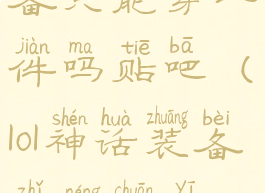 备只能穿一
jiàn ma tiē bā
件吗贴吧（
shén huà zhuāng bèi
101神话装备
zhǐ néng chuān yī